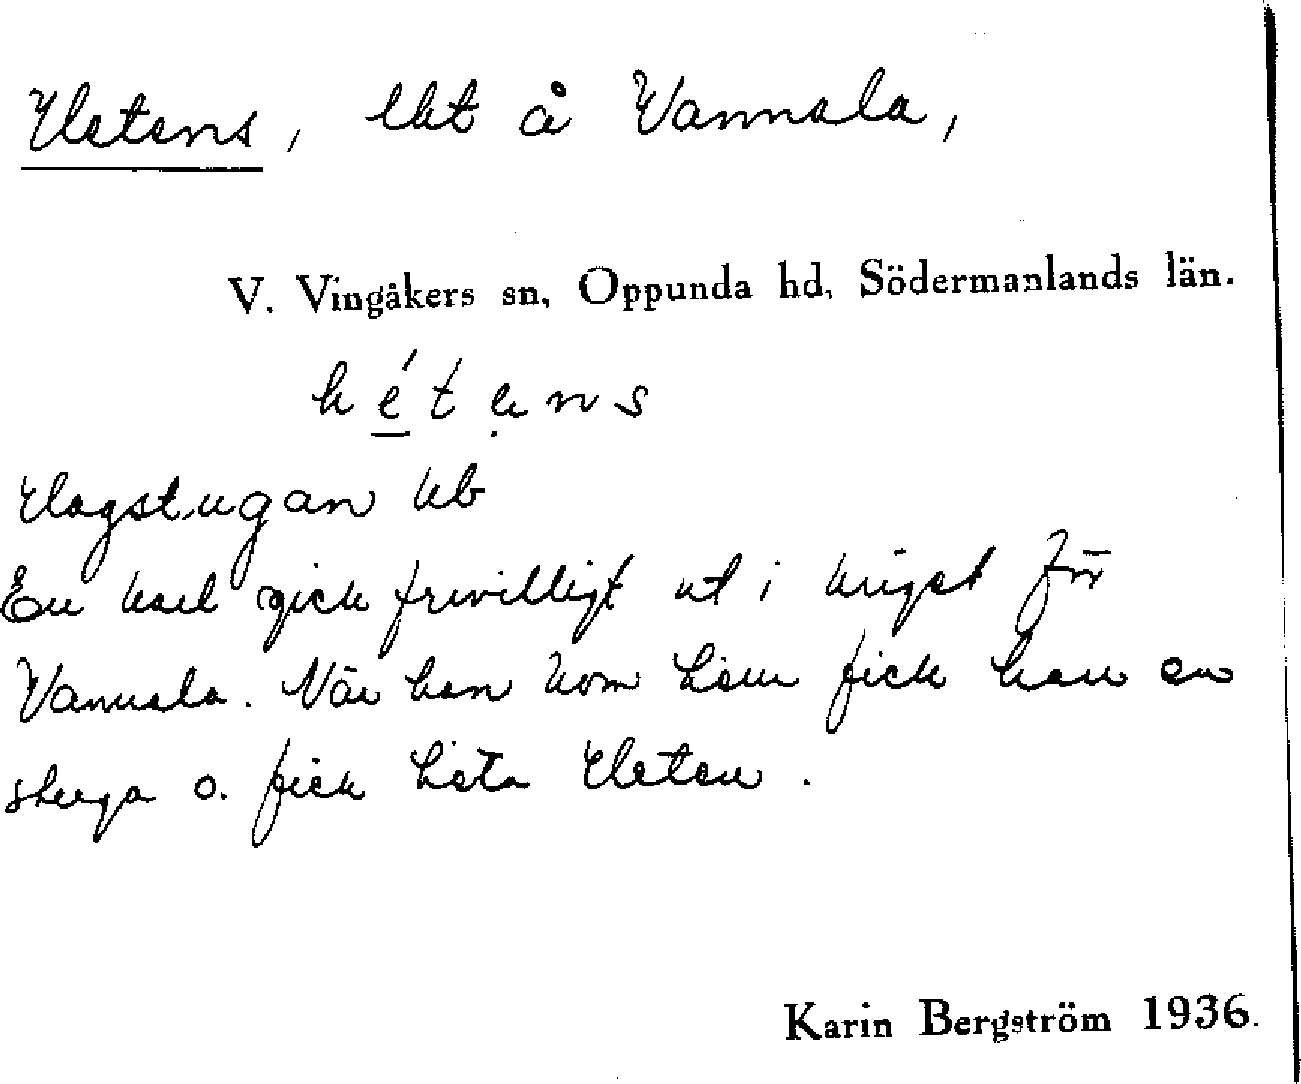 Hetens, lht å Vannala,
V. Vingåkers sn, Oppunda hd, Södermanlands län.
hétens
Hagstugan kb
En karl gick frivilligt ut i kriget för
Vannala. När han kom hem fick han en
stuga o. fick heta Heten.
Karin Bergström 1936.